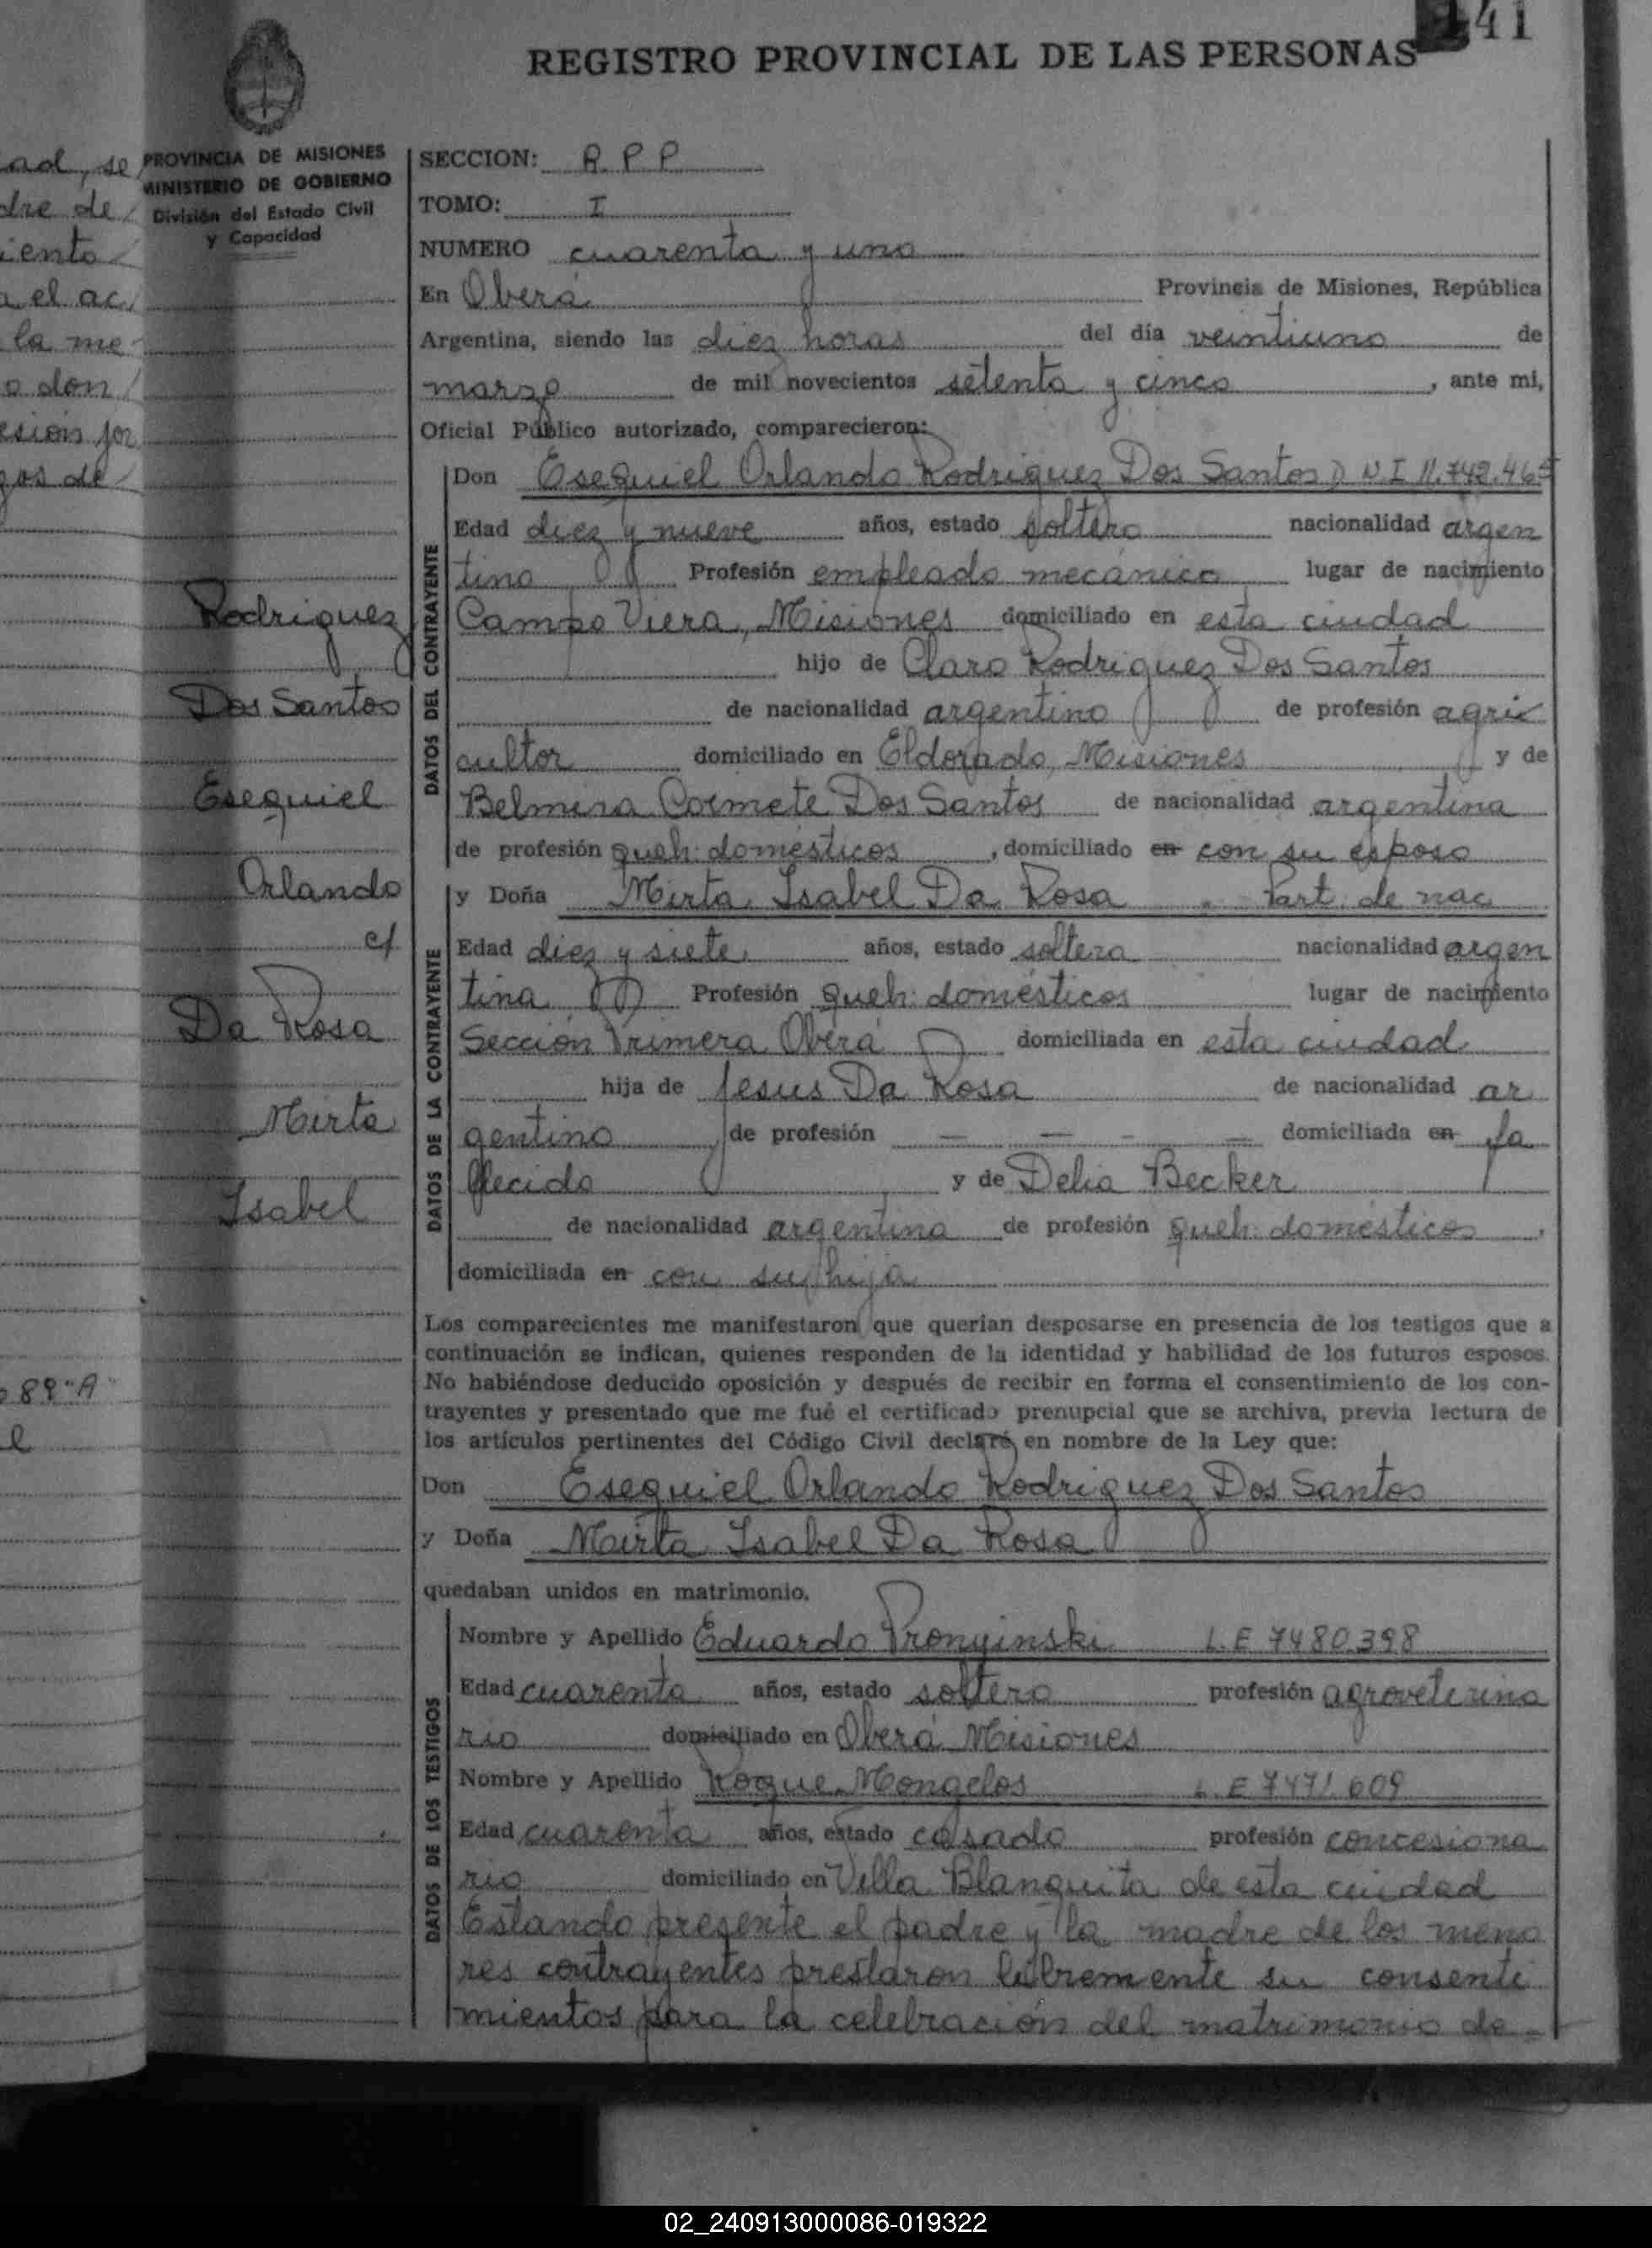 41
REGISTRO PROVINCIAL DE LAS PERSONAS
PROVINCIA DE MISIONES
MINISTERIO DE GOBIERNO
División del Estado Civil
y Capacidad
ad, se
dre de
iento
a el ac
la me
o don
esión jor
gos de
82 "A"
Rodriguez
Dos Santos
Esequiel
Orlando
c/
Da Rosa
Mirta
Isabel
SECCION: R.P.P
TOMO: I
NUMERO cuarenta y uno
En Oberá Provincia de Misiones, República
Argentina, siendo las diez horas del día veintiuno de
marzo de mil novecientos setenta y cinco, ante mi,
Oficial Público autorizado, comparecieron:
DATOS DEL CONTRAYENTE
Don Esequiel Orlando Rodriguez Dos Santos D N I 11.742.465
Edad diez y nueve años, estado soltero nacionalidad argen
tino Profesión empleado mecánico lugar de nacimiento
Campo Viera, Misiones domiciliado en esta ciudad
hijo de Claro Rodriguez Dos Santos
de nacionalidad argentino de profesión agri
cultor domiciliado en Eldorado, Misiones y de
Belmira Dos Santos de nacionalidad argentina
de profesión queh. domésticos, domiciliado en con su esposo
DATOS DE LA CONTRAYENTE
y Doña Mirta Isabel Da Rosa Part. de nac
Edad diez y siete años, estado soltera nacionalidad argen
tina Profesión queh. domésticos lugar de nacimiento
Sección Primera Oberá domiciliada en esta ciudad
hija de Jesus Da Rosa de nacionalidad ar
gentino de profesión — — - — domiciliada en fa
llecido y de Delia Becker
de nacionalidad argentina de profesión queh. domésticos,
domiciliada en con su hija
Los comparecientes me manifestaron que querian desposarse en presencia de los testigos que a
continuación se indican, quienes responden de la identidad y habilidad de los futuros esposos.
No habiéndose deducido oposición y después de recibir en forma el consentimiento de los con-
trayentes y presentado que me fué el certificado prenupcial que se archiva, previa lectura de
los artículos pertinentes del Código Civil declaré en nombre de la Ley que:
Don Esequiel Orlando Rodriguez Dos Santos
y Doña Mirta Isabel Da Rosa
quedaban unidos en matrimonio.
DATOS DE LOS TESTIGOS
Nombre y Apellido Eduardo Pronyinski L.E 7480.398
Edad cuarenta años, estado soltero profesión agroveterina
rio domiciliado en Oberá Misiones
Nombre y Apellido Roque Mongelos L.E 7471.609
Edad cuarenta años, estado casado profesión concesiona
rio domiciliado en Villa Blanquita de esta ciudad
Estando presente el padre y la madre de los meno
res contrayentes prestaron libremente su consenti
mientos para la celebración del matrimonio de=
02_240913000086-019322